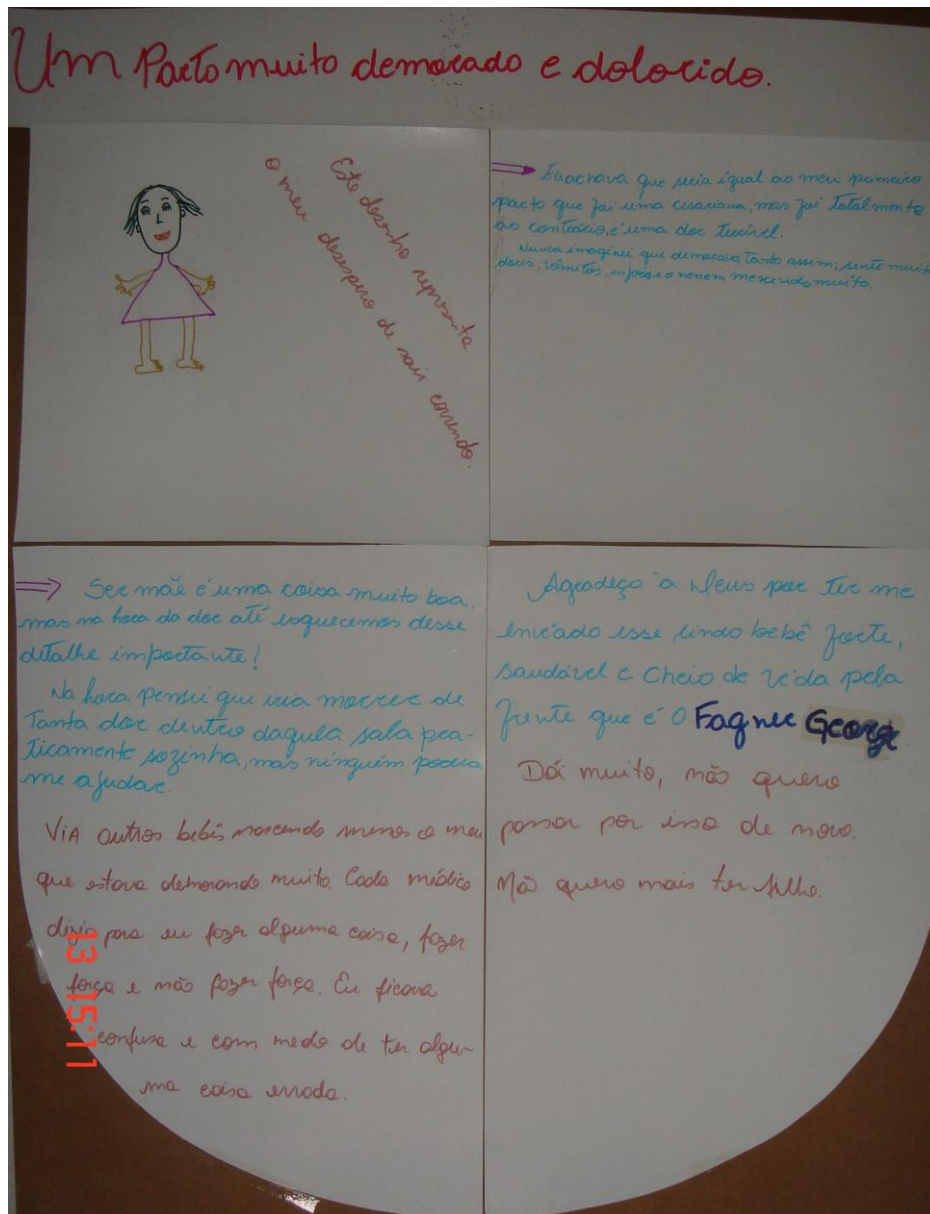 Um Parto muito demorado e dolorido.
Este desenho representa
o meu desespero de sair correndo.
Eu achava que seria igual ao meu primeiro
parto que foi uma cesariana, mas foi totalmente
ao contrário, é uma dor terrível.
Nunca imaginei que demorava tanto assim, senti muit
dores, vômitos, enjoos e o nenem mexendo muito.
Ser mãe é uma coisa muito boa,
mas na hora da dor até esquecemos desse
detalhe importante!
Na hora pensei que iria morrer de
Tanta dor dentro daquela sala pra-
ticamente sozinha, mas ninguém podia
me ajudar.
Via outros bebês nascendo menos o meu
que estava demorando muito. Cada médico
dizia para eu fazer alguma coisa, fazer
força e não fazer força. Eu ficava
confusa e com medo de ter algu-
ma coisa errada.
Agradeço à Deus por Ter me
enviado esse lindo bebê forte,
saudável e Cheio de vida pela
frente que é o Fagner George
Dói muito, não quero
passar por isso de novo.
Não quero mais ter filho.
13 15:11